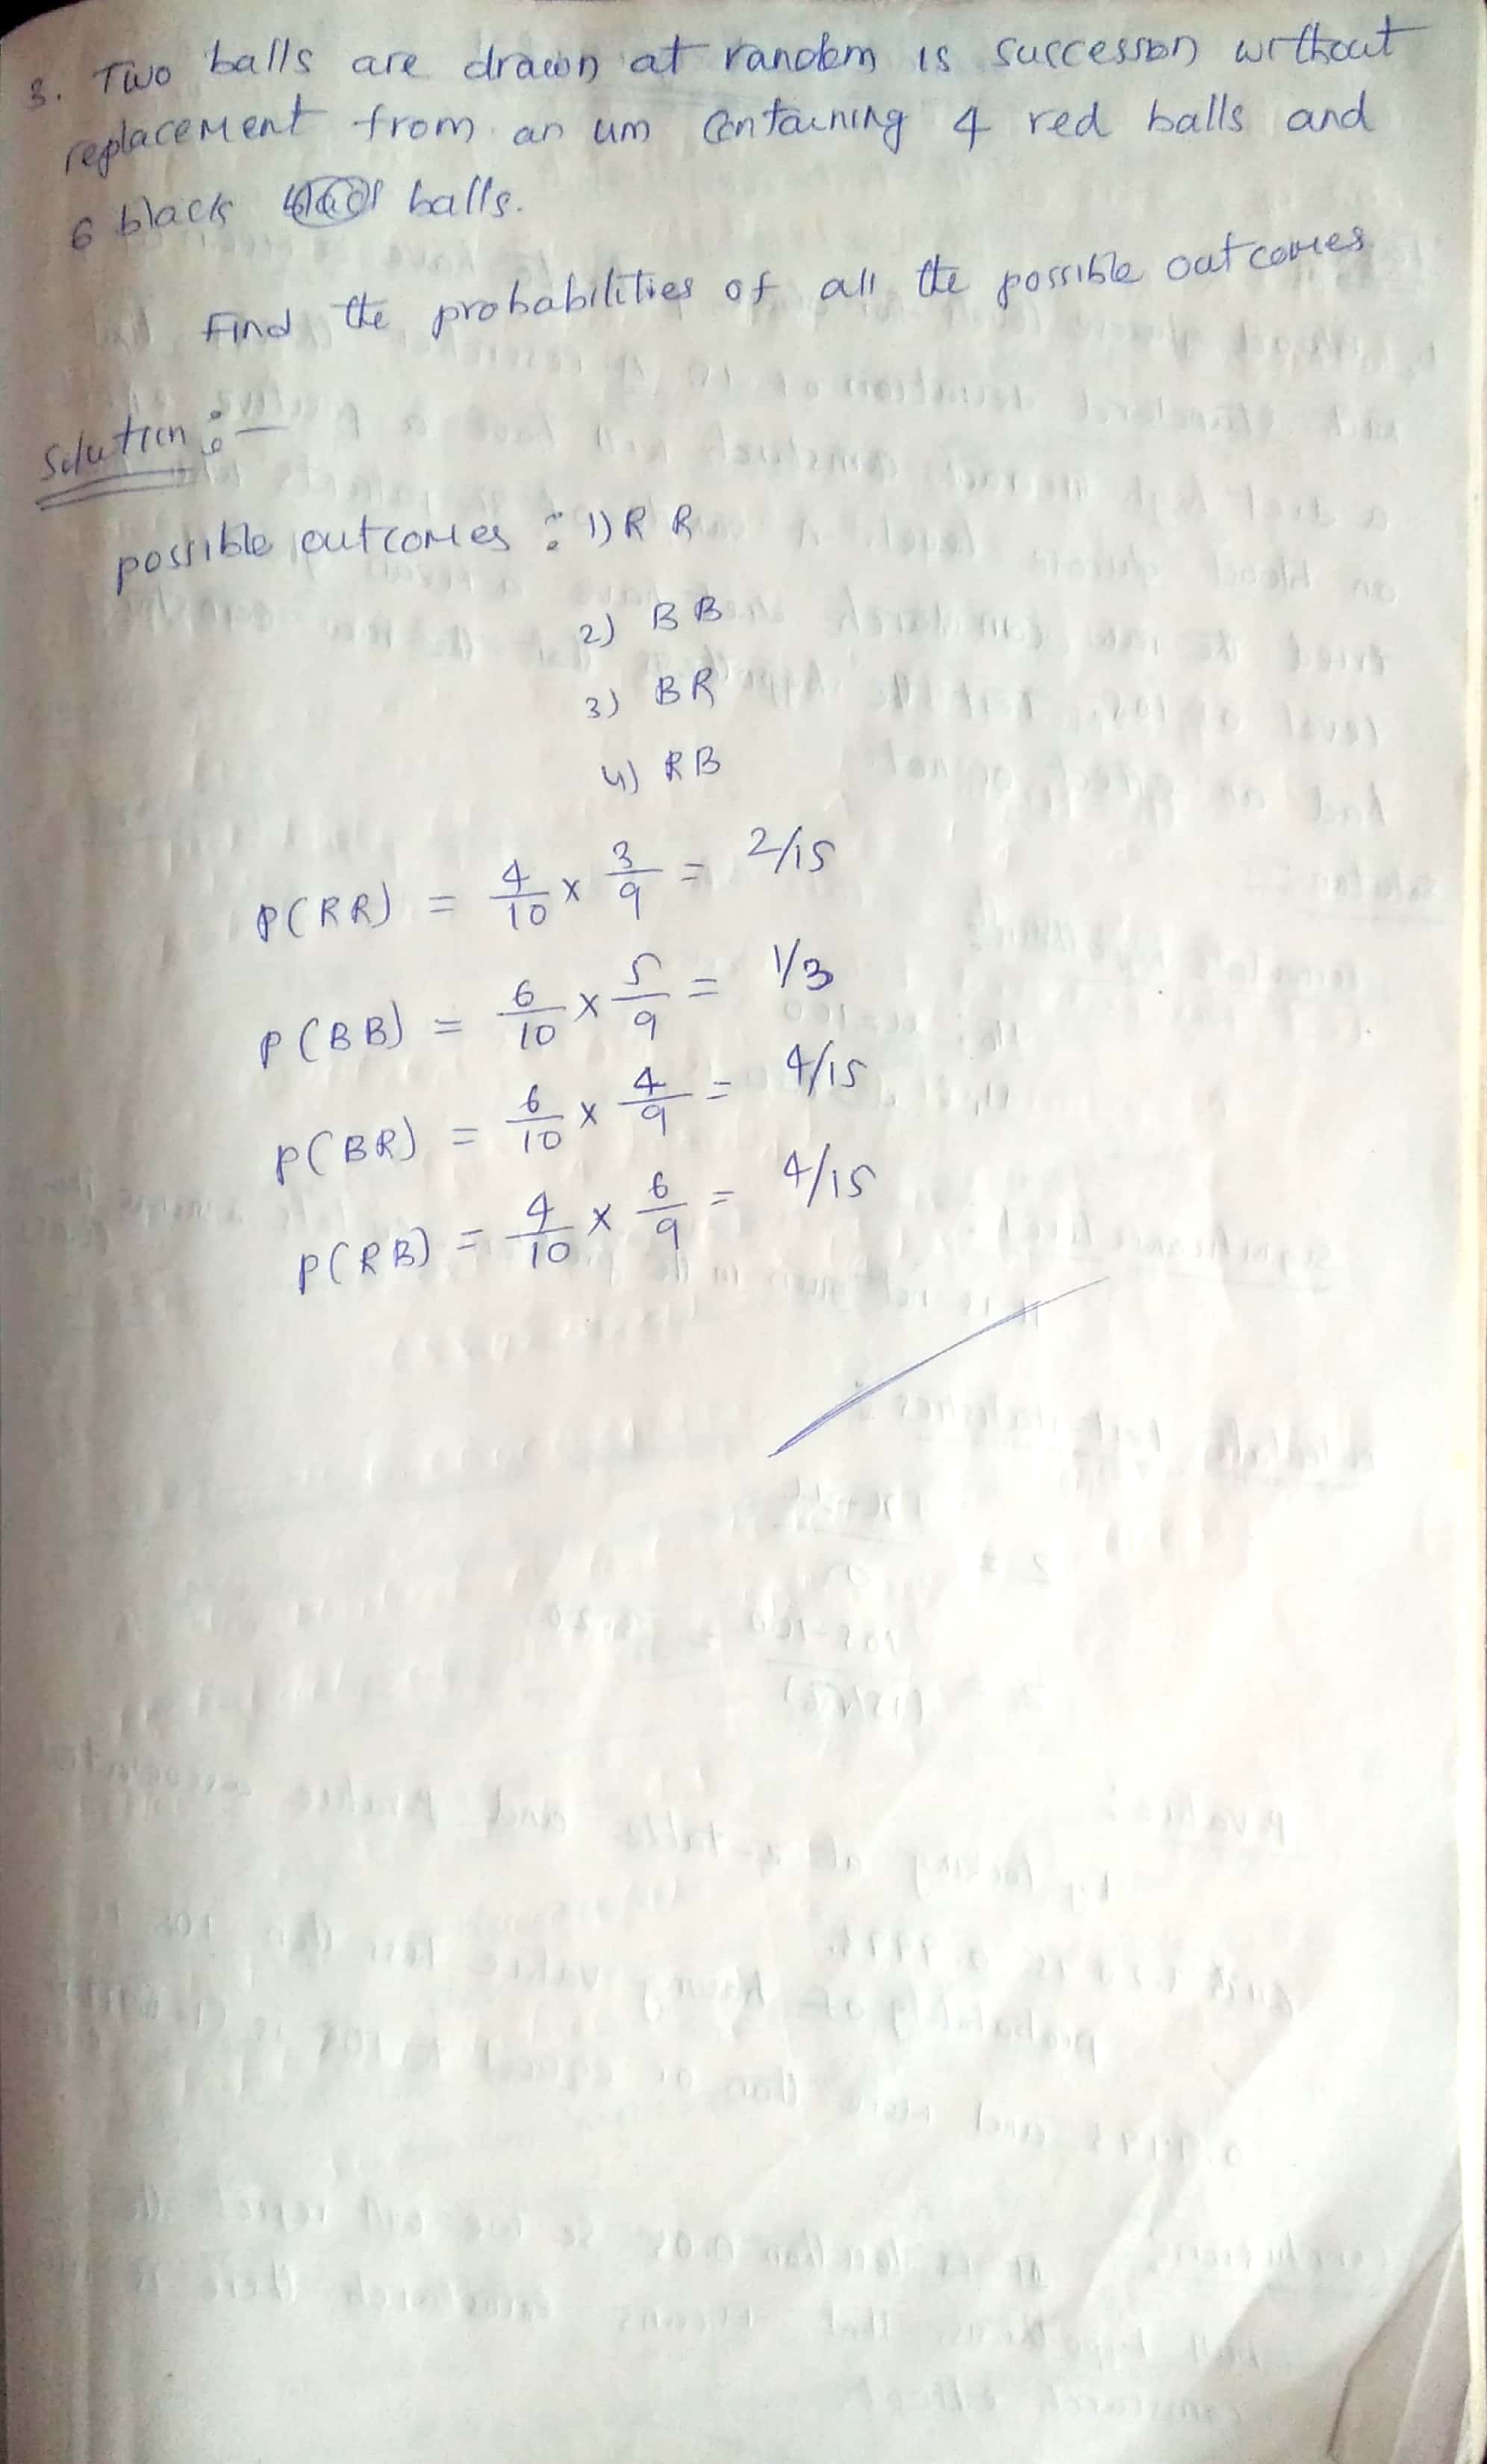 3. Two balls are drawn at random is succession without
replacement from an urn containing 4 red balls and
6 black balls.
Find the probabilities of all the possible outcomes
Solution :-
possible outcomes : 1) R R
2) B B
3) B R
4) R B
P(RR) = 4/10 x 3/9 = 2/15
P(BB) = 6/10 x 5/9 = 1/3
P(BR) = 6/10 x 4/9 = 4/15
P(RB) = 4/10 x 6/9 = 4/15